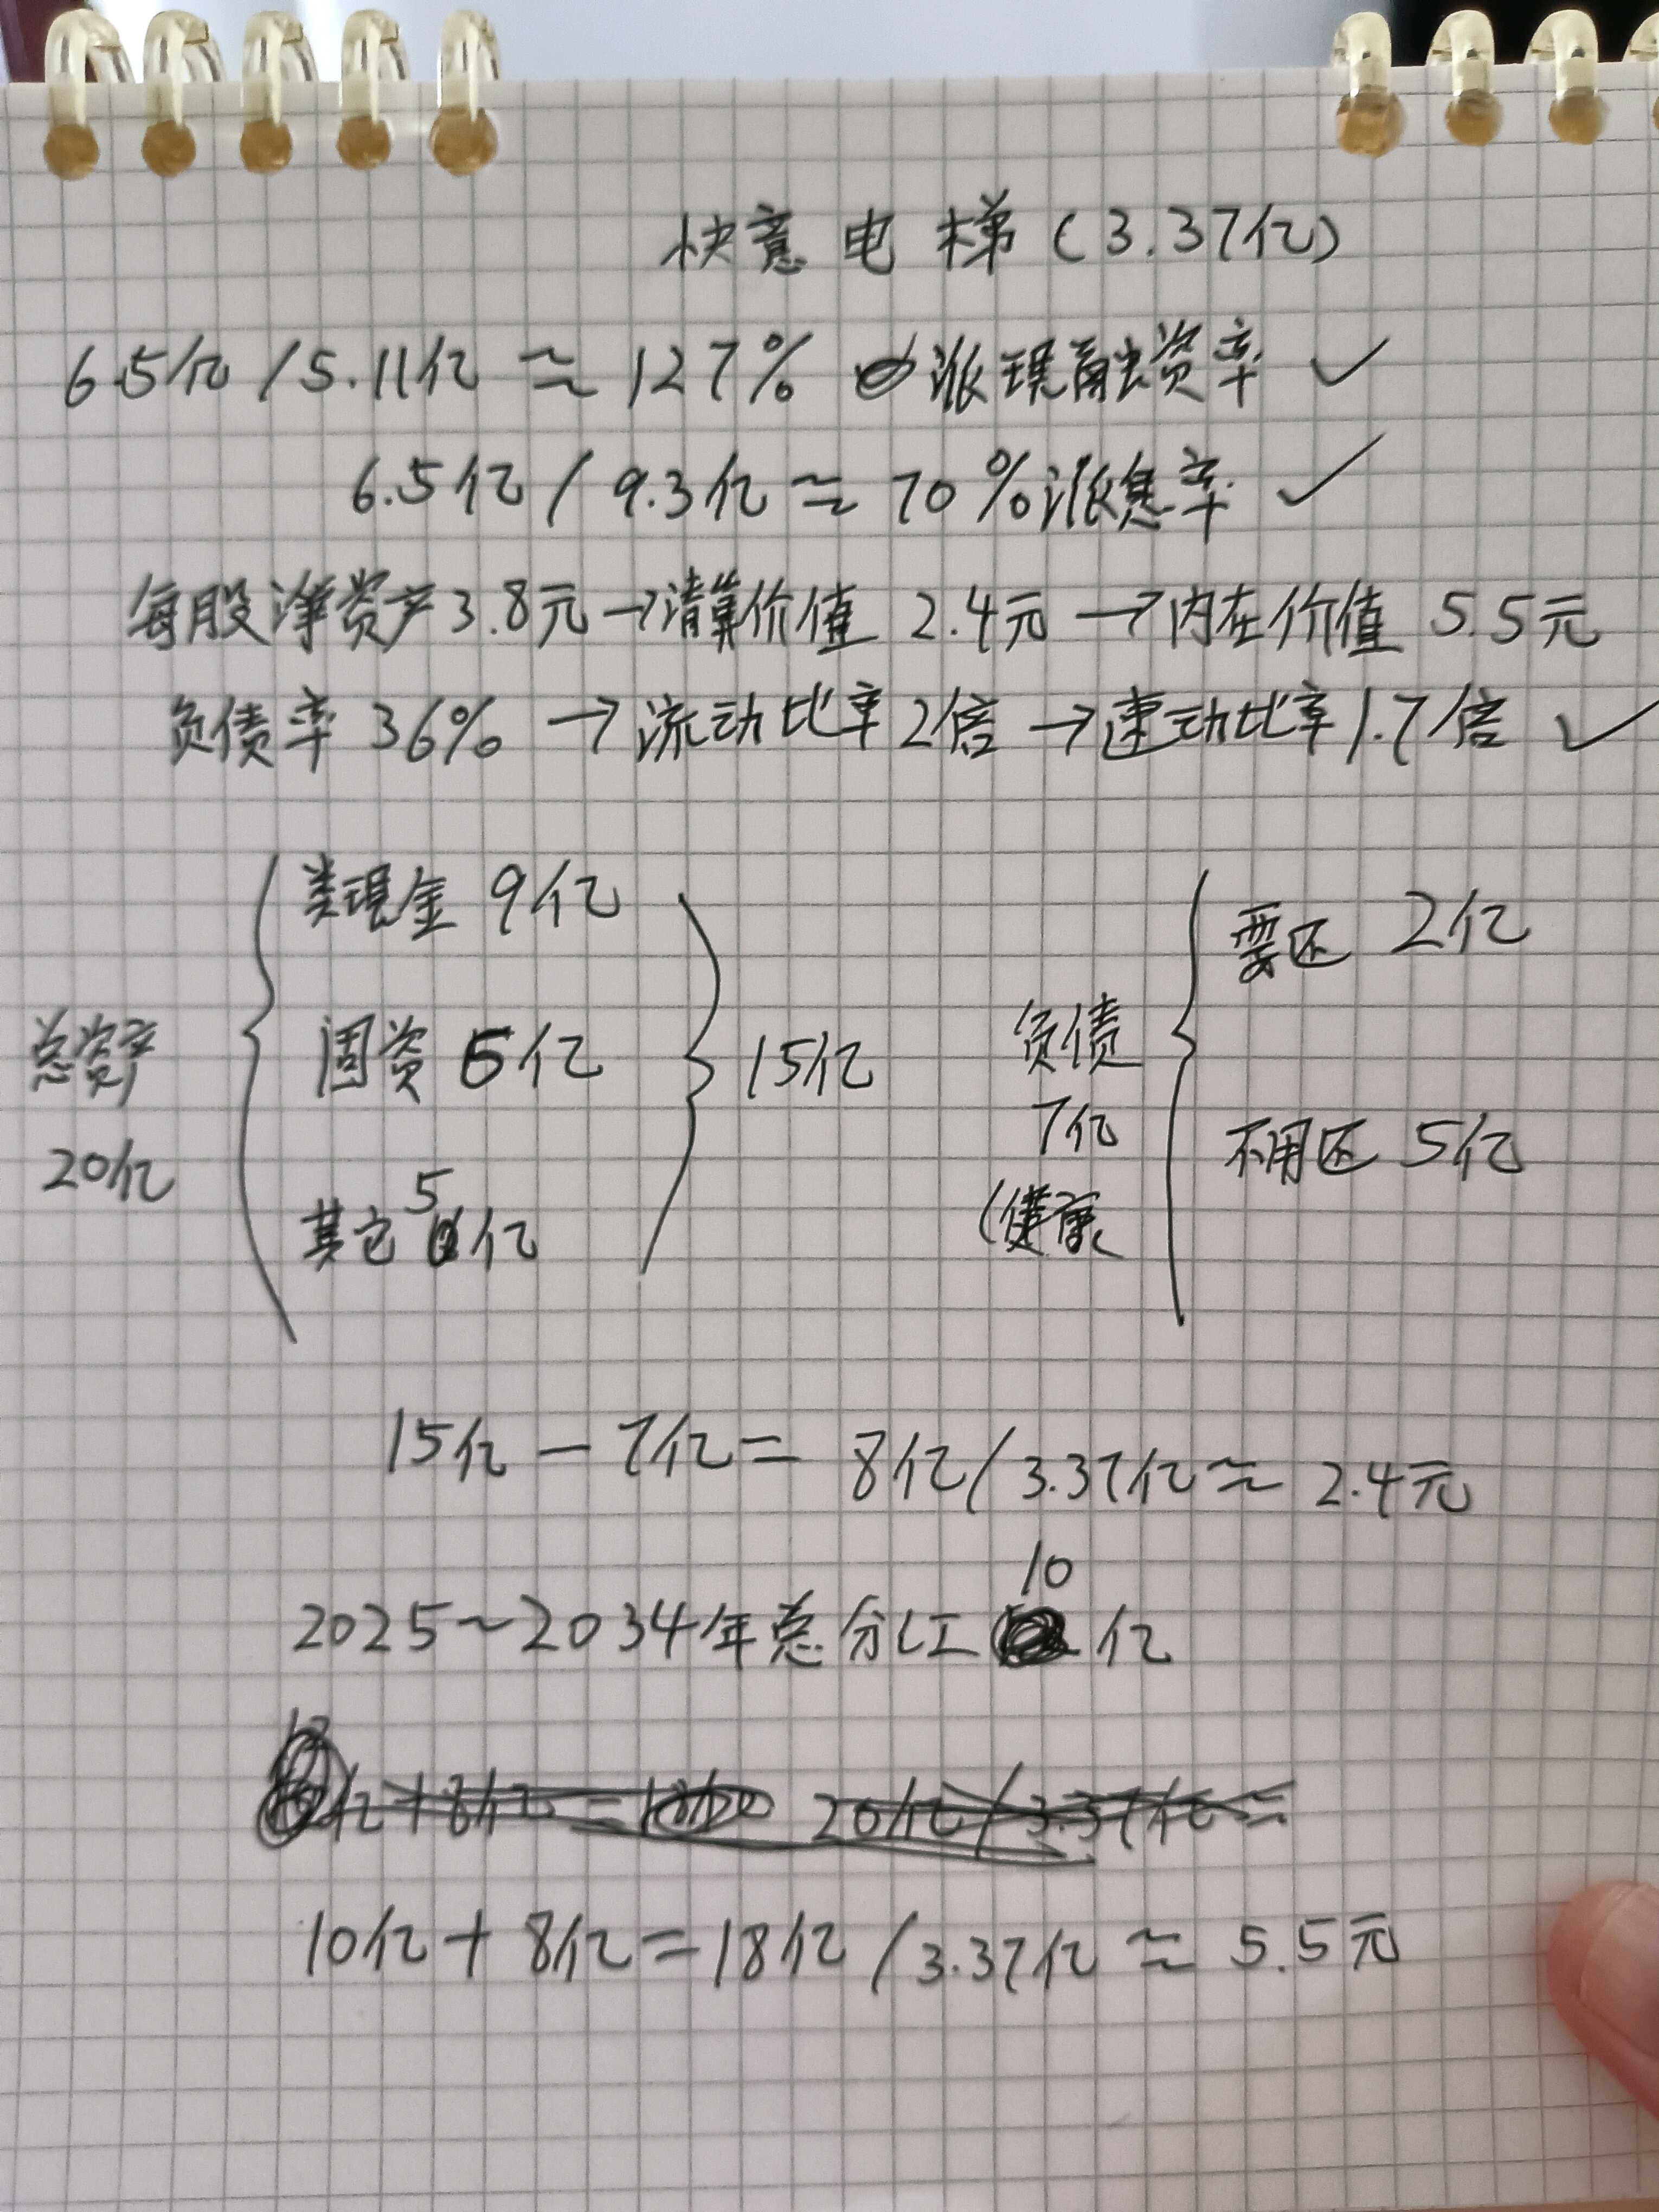 快意电梯(3.37亿)
6.5亿/5.11亿≈127% 派现融资率 ✓
6.5亿/9.3亿≈70%派息率 ✓
每股净资产3.8元→清算价值 2.4元→内在价值 5.5元
负债率 36% →流动比率2倍→速动比率1.7倍 ✓
类现金 9亿
固资 6亿
其它 5亿
总资产
20亿
15亿
负债
7亿
(健康
要还 2亿
不用还 5亿
15亿-7亿= 8亿/3.37亿≈ 2.4元
2025~2034年总分红 10亿
亿+8亿= 20亿/3.37亿=
10亿+8亿=18亿/3.37亿≈5.5元